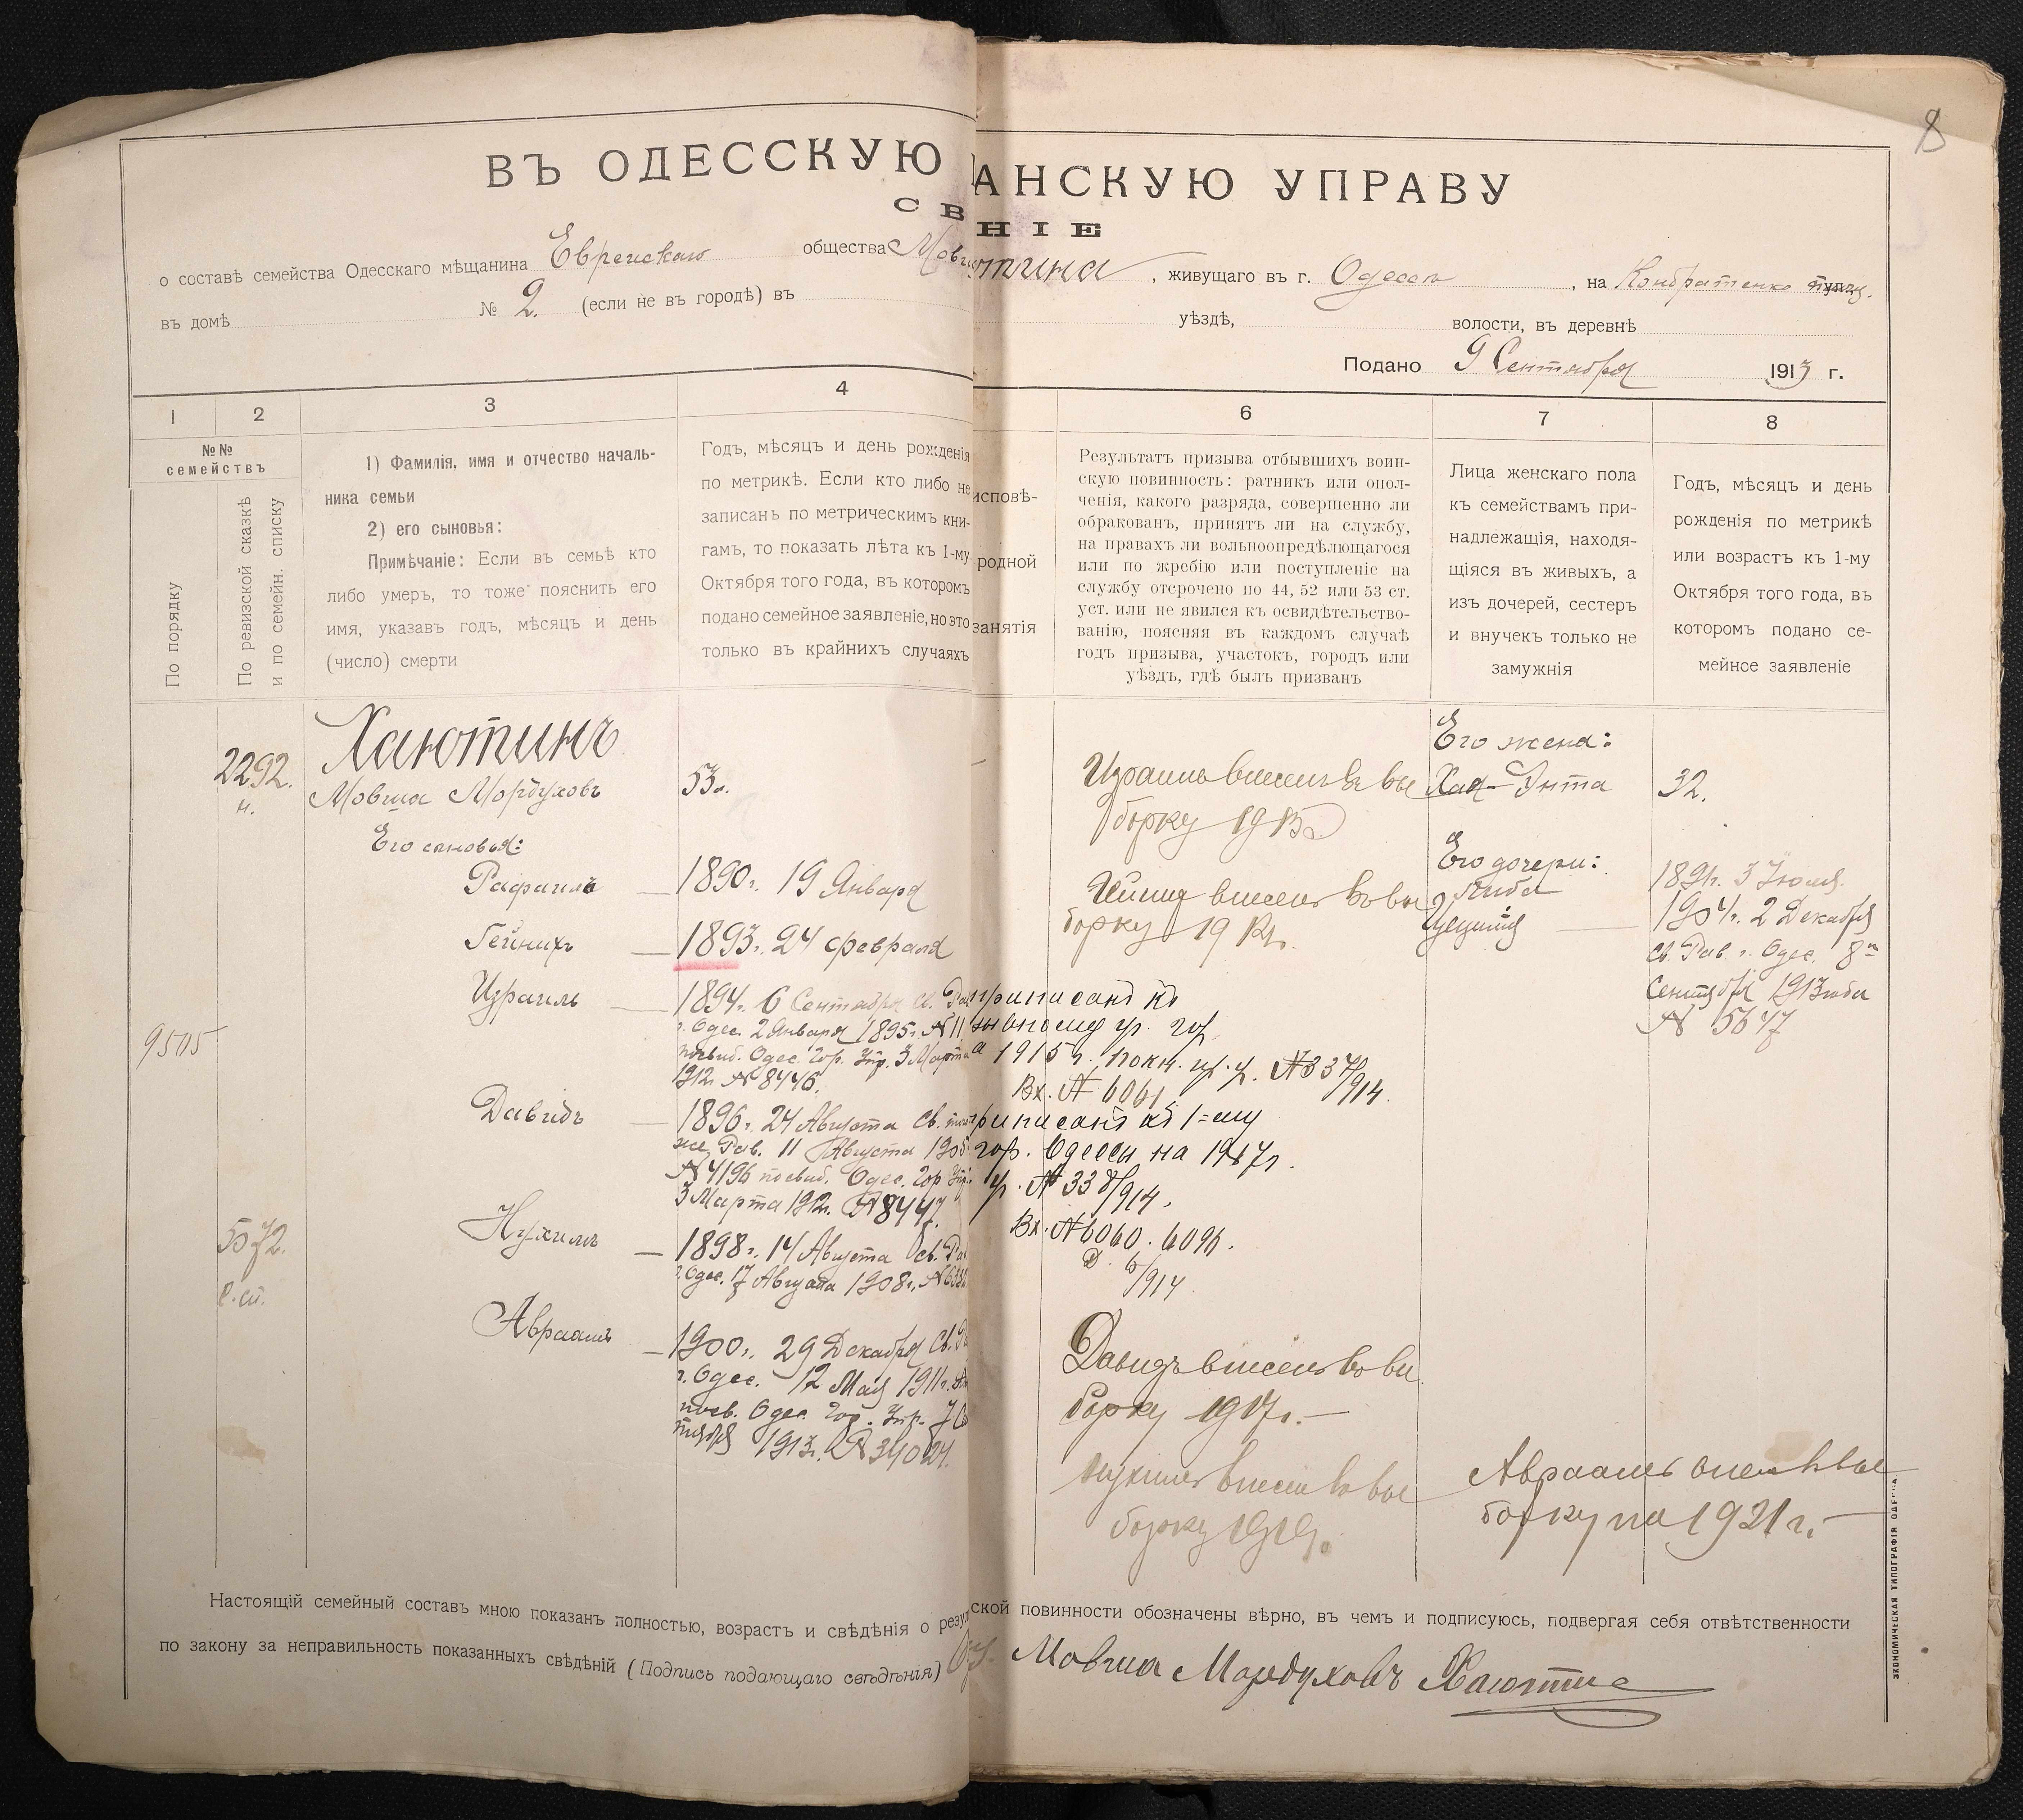 8
ВЪ ОДЕССКУЮ АНСКУЮ УПРАВУ
СВ НІЕ
о составѣ семейства Одесскаго мѣщанина Еврейскаго общества тина, живущаго въ г. Одессѣ, на Кондратенко улиц.
въ домѣ № 2. (если не въ городѣ) въ уѣздѣ, волости, въ деревнѣ
Подано 9 Сентября 1913 г.
1 2 3 4 6 7 8
№№ семействъ
По порядку
По ревизской сказкѣ
и по семейн. списку
1) Фамилія, имя и отчество началь-
ника семьи
2) его сыновья:
Примѣчаніе: Если въ семьѣ кто
либо умеръ, то тоже пояснить его
имя, указавъ годъ, мѣсяцъ и день
(число) смерти
Годъ, мѣсяцъ и день рожденія
по метрикѣ. Если кто либо не
записанъ по метрическимъ кни-
гамъ, то показать лѣта къ 1-му
Октября того года, въ которомъ
подано семейное заявленіе, но это
только въ крайнихъ случаяхъ
исповѣ-
родной
занятія
Результатъ призыва отбывшихъ воин-
скую повинность: ратникъ или опол-
ченія, какого разряда, совершенно ли
обракованъ, принятъ ли на службу,
на правахъ ли вольноопредѣляющагося
или по жребію или поступленіе на
службу отсрочено по 44, 52 или 53 ст.
уст. или не явился къ освидѣтельство-
ванію, поясняя въ каждомъ случаѣ
годъ призыва, участокъ, городъ или
уѣздъ, гдѣ былъ призванъ
Лица женскаго пола
къ семействамъ при-
надлежащія, находя-
щіяся въ живыхъ, а
изъ дочерей, сестеръ
и внучекъ только не
замужнія
Годъ, мѣсяцъ и день
рожденія по метрикѣ
или возрастъ къ 1-му
Октября того года, въ
которомъ подано се-
мейное заявленіе
2292.
н.
9505
5072.
Хаютинъ
Мовша Мордуховъ
Его сыновья:
Рафаилъ
Гейнихъ
Израиль
Давидъ
Нухимъ
Авраамъ
53 л.
1890 г. 19 Января
1893 г. 24 февраля
1894 г. 6 Сентября св. Рав
г. Одес. 2 Января 1895 г. № 11
посвид. Одес. Гор. Упр. 3 Марта
1912 г. № 8446.
1896 г. 24 Августа св. того
же Рав. 11 Августа 190
№ 4196 посвид. Одес. Гор. Упр.
3 Марта 1912 г. № 8447.
1898 г. 14 Августа св. Рав
г. Одес. 17 Августа 1908 г. №
1900 г. 29 Декабря св. Р
г. Одес. 12 Мая 1911 г. №
посв. Одес. Гор. Упр. 7 Се
тября 1913 г. № 34024.
приписанъ къ
зывному уч. гор.
а 1915 г. № 337/914.
Вх. № 6061
приписанъ къ 1=му
гор. Одессы на 1917 г.
№ 338/914.
Вх. № 6060. 6096.
/914
Израиль внесенъ въ вы
борку 1915 г.
внесенъ въ вы
борку 19
Давидъ внесенъ въ вы
борку 1917 г.
Нухимъ внесен въ вы
борку 1919 г.
Его жена:
Хая-Энта
Его дочери:
Цецилія
32.
1891 г. 3 Іюля
1904 г. 2 Декабря
св. Рав. г. Одес. 8го
Сентября 1913 года
№ 5647
Авраамъ внесен въ вы
борку на 1921 г.
Настоящій семейный составъ мною показанъ полностью, возрастъ и свѣдѣнія о резу ской повинности обозначены вѣрно, въ чемъ и подписуюсь, подвергая себя отвѣтственности
по закону за неправильность показанныхъ свѣдѣній (Подпись подающаго свѣдѣнія) Мовша Мордуховъ Хаютинъ
ЭКОНОМИЧЕСКАЯ ТИПОГРАФІЯ ОДЕССА